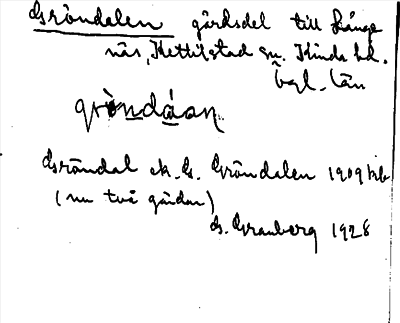 Gröndalen gårdsdel till Långe
näs, Kettilstad sn. Kinda hd.
Ögl. län
gròndáan
Gröndal ek. G. Gröndalen 1909
(nu två gårdar)
G. Granberg 1928